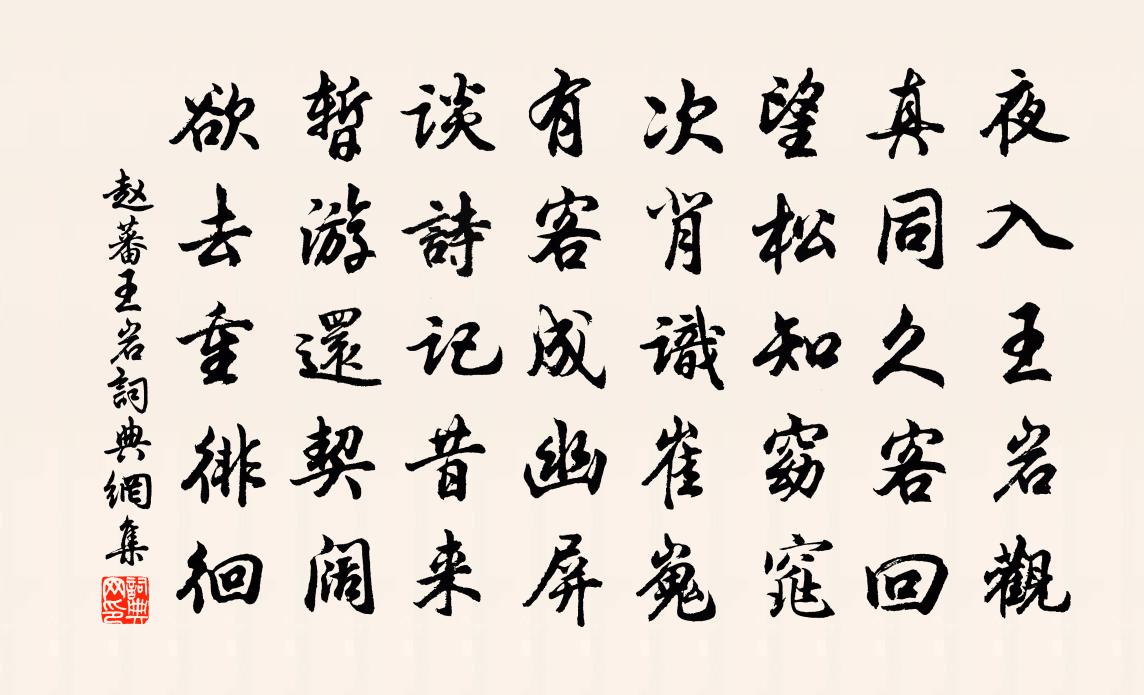 夜入王岩觀
真同久客回
望松知窈窕
次肖識崔嵬
有客成幽屏
谈詩记昔来
暫游還契阔
欲去重徘徊
赵蕃王岩詞典網集
詞典网印